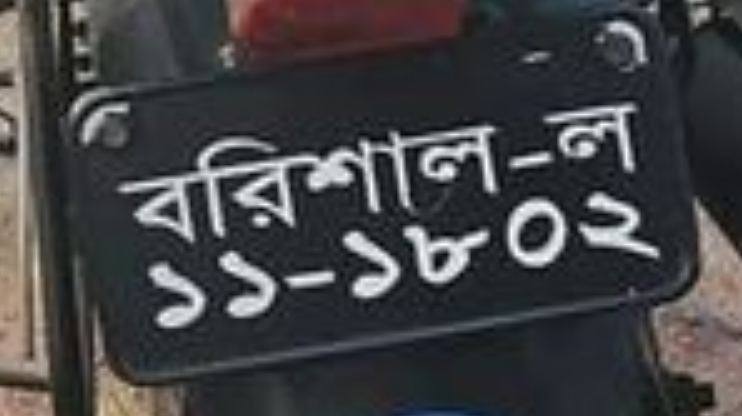 বরিশাল-ল
১১-১৮০২